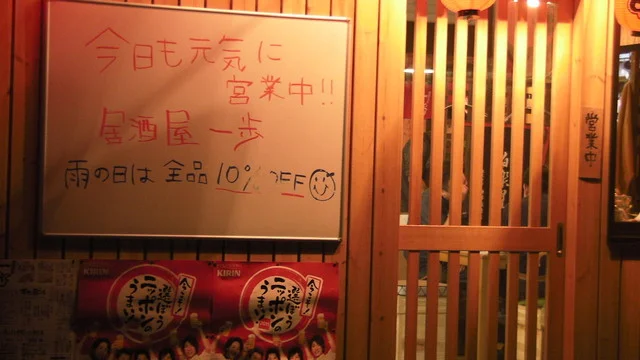 今日も元気に
営業中!!
居酒屋 一歩
雨の日は 全品 10% OFF
営業中
KIRIN
今こそ!
選ぼう
ニッポンの
うまい!
KIRIN
今こそ!
選ぼう
ニッポンの
うまい!